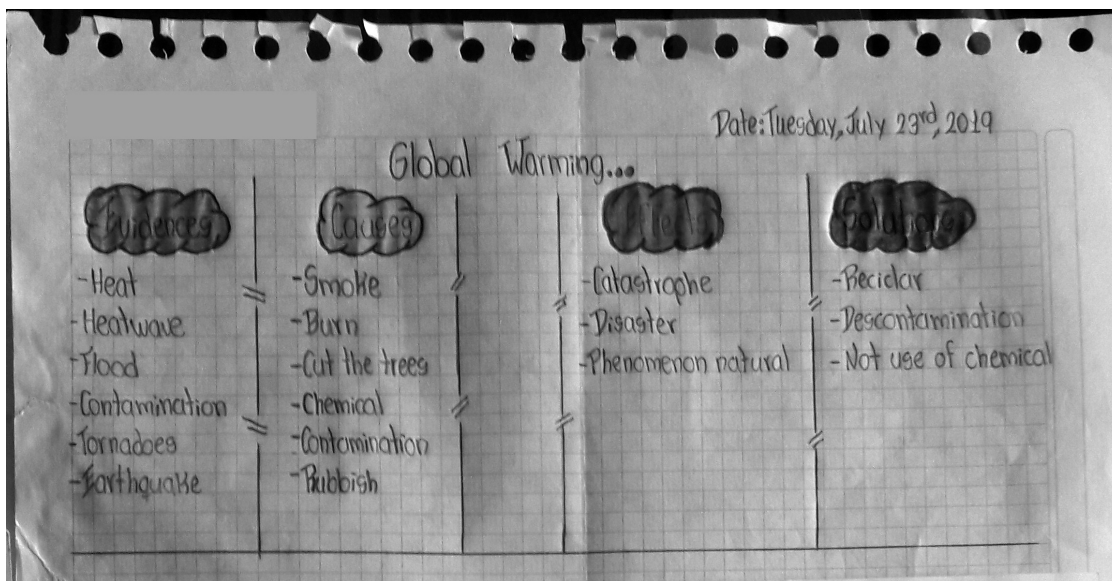 Date: Tuesday, July 23rd, 2019
Global Warming...
Evidences
-Heat
-Heatwave
-Flood
-Contamination
-Tornadoes
-Earthquake
Causes
-Smoke
-Burn
-Cut the trees
-Chemical
-Contamination
-Rubbish
-Catastrophe
-Disaster
-Phenomenon natural
-Reciclar
-Descontamination
-Not use of chemical